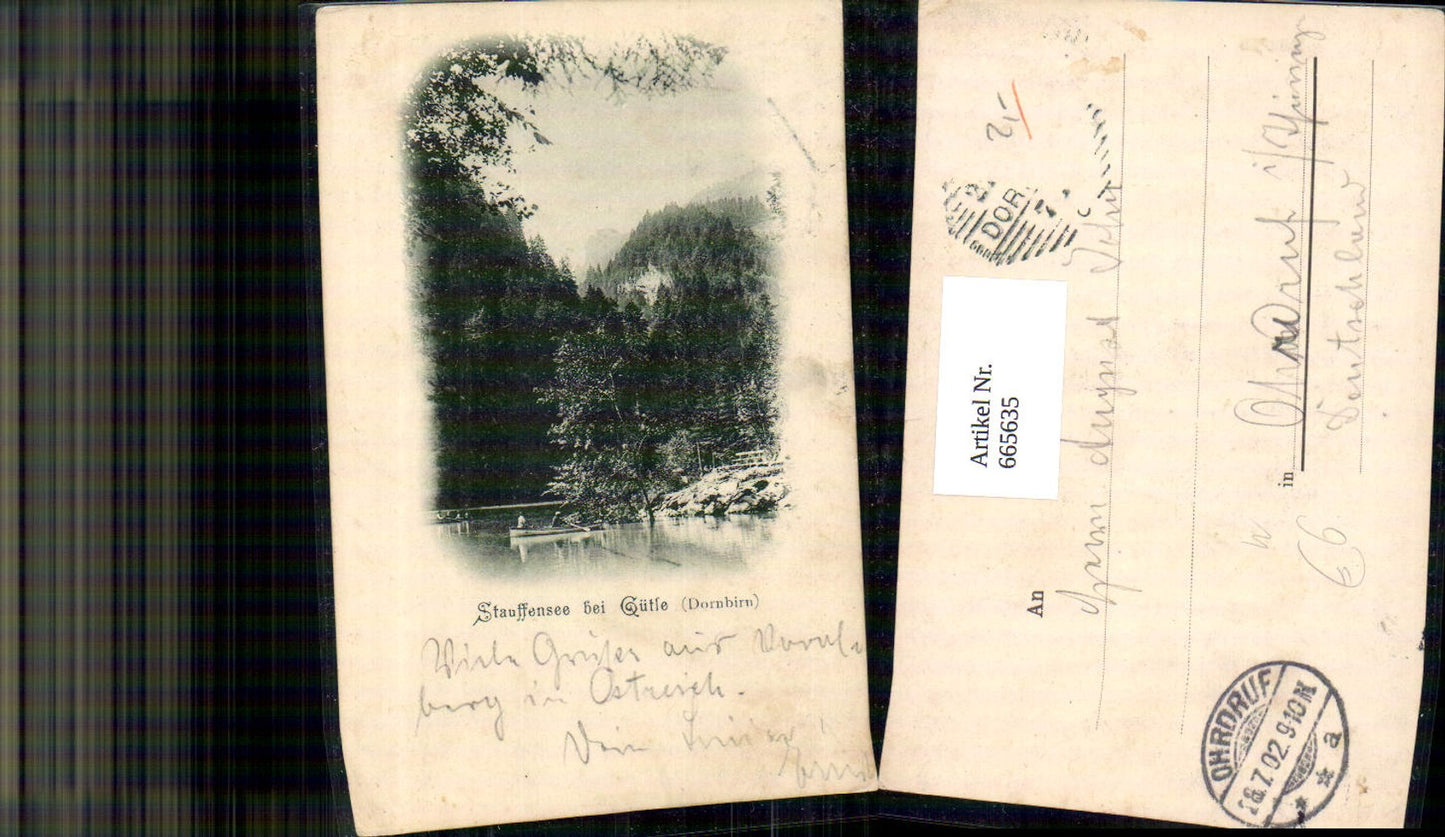 Stauffensee bei Gütle (Dornbirn)
Viele Grüße aus Vorarl-
berg in Östreich.
Dein
2,-
DOR
Artikel Nr.
665635
An
Herrn August
in Ohrdruf i/Thüring
Deutschland
66
OHRDRUF
18.7.02.9-10N
a